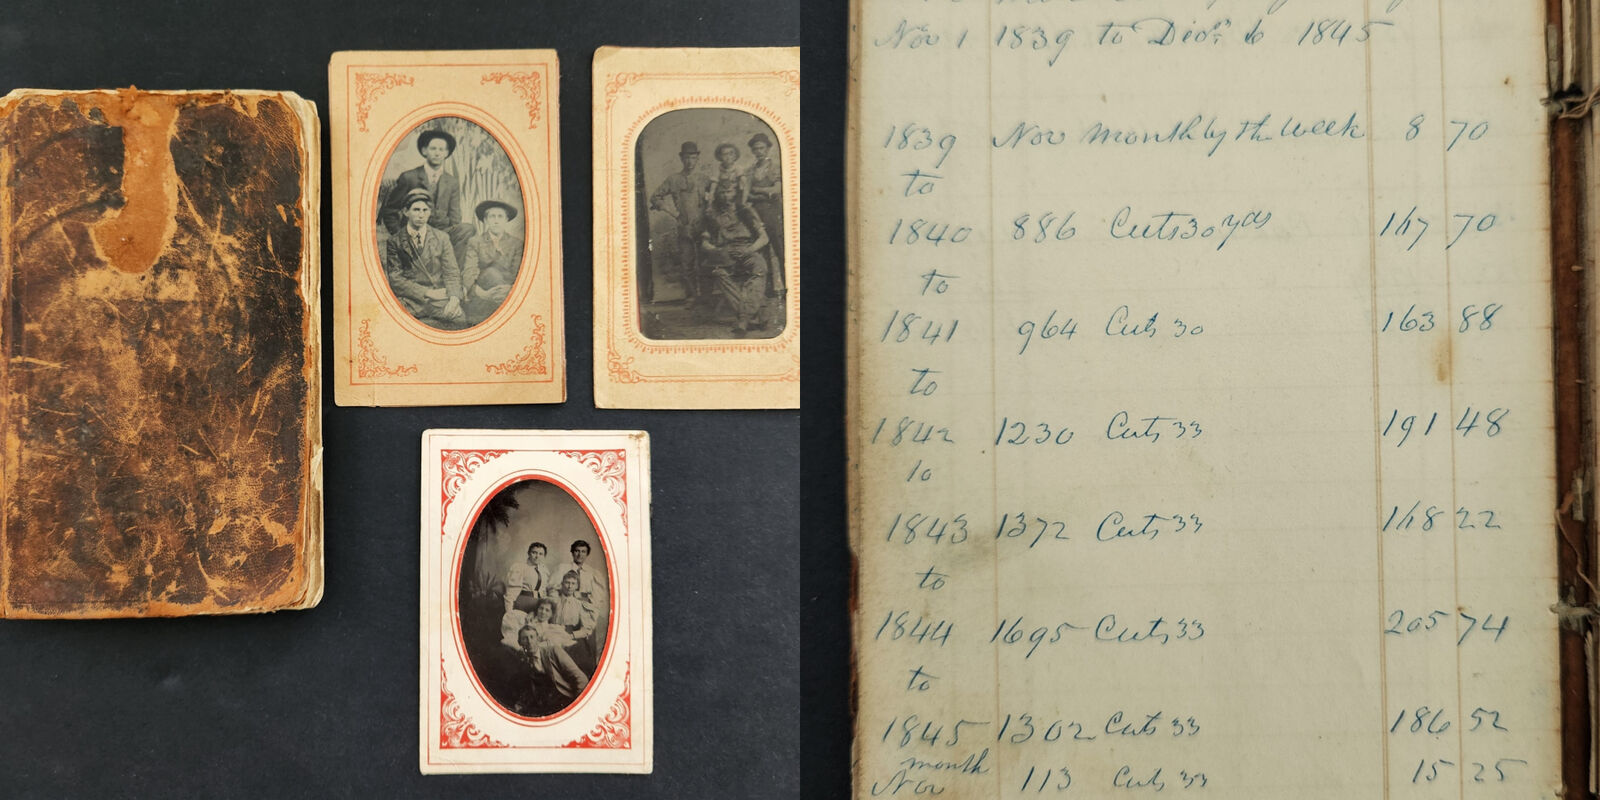 Nov 1 1839 to Decr. 6 1845
1839 Nov month by the week 8 70
to
1840 886 Cuts 30 yds 147 70
to
1841 964 Cuts 30 163 88
to
1842 1230 Cuts 33 191 48
to
1843 1372 Cuts 33 148 22
to
1844 1695 Cuts 33 205 74
to
1845 1302 Cuts 33 186 52
month
Nov 113 Cuts 33 15 25